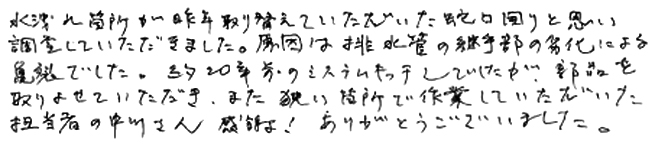 水漏れ箇所が昨年取り替えていただいた蛇口回りと思い
調査していただきました。原因は排水管の継手部の劣化による
亀裂でした。約20年前のシステムキッチンでしたが、部品を
取りよせていただき、また狭い箇所で作業していただいた
担当者の中川さん 感謝よ! ありがとうございました。